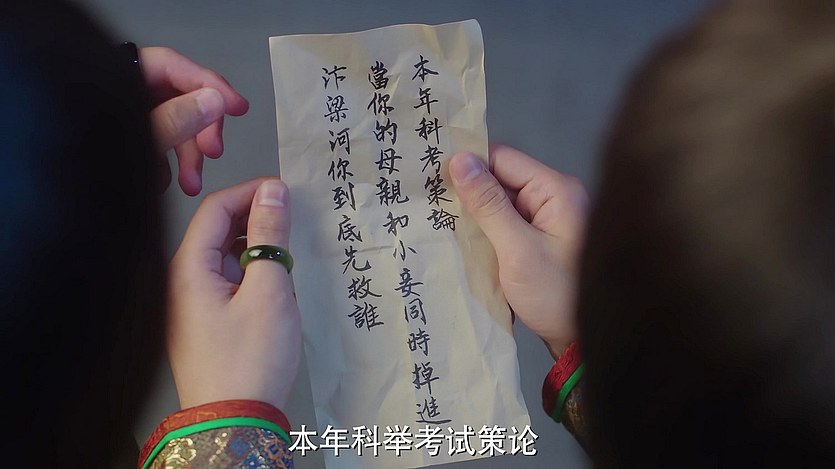 本年科考策論
當你的母親和小妾同時掉進
汴梁河你到底先救誰
本年科举考试策论